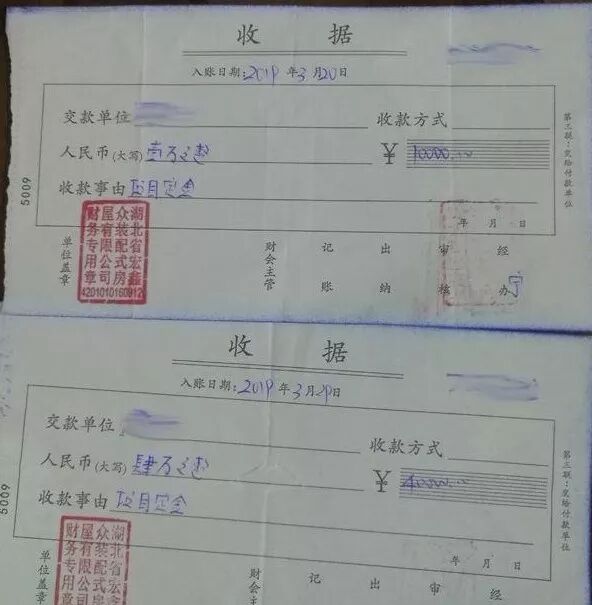 收 据
入账日期:2019年3月20日
交款单位 收款方式
人民币(大写)壹万元整 ¥ 10000.00
收款事由 项目定金
年 月 日
单位盖章 财会主管 记账 出纳 审核 经办
湖北省宏鑫
众装配式房
屋有限公司
财务专用章
4201010160912
第三联:交给付款单位
5009
收 据
入账日期:2019年3月29日
交款单位 收款方式
人民币(大写)肆万元整 ¥ 40000.00
收款事由 项目定金
年 月 日
单位盖章 财会 记 出 审 经
湖北省宏
众装配式房
屋有限公
财务专用章
第三联:交给付款单位
5009